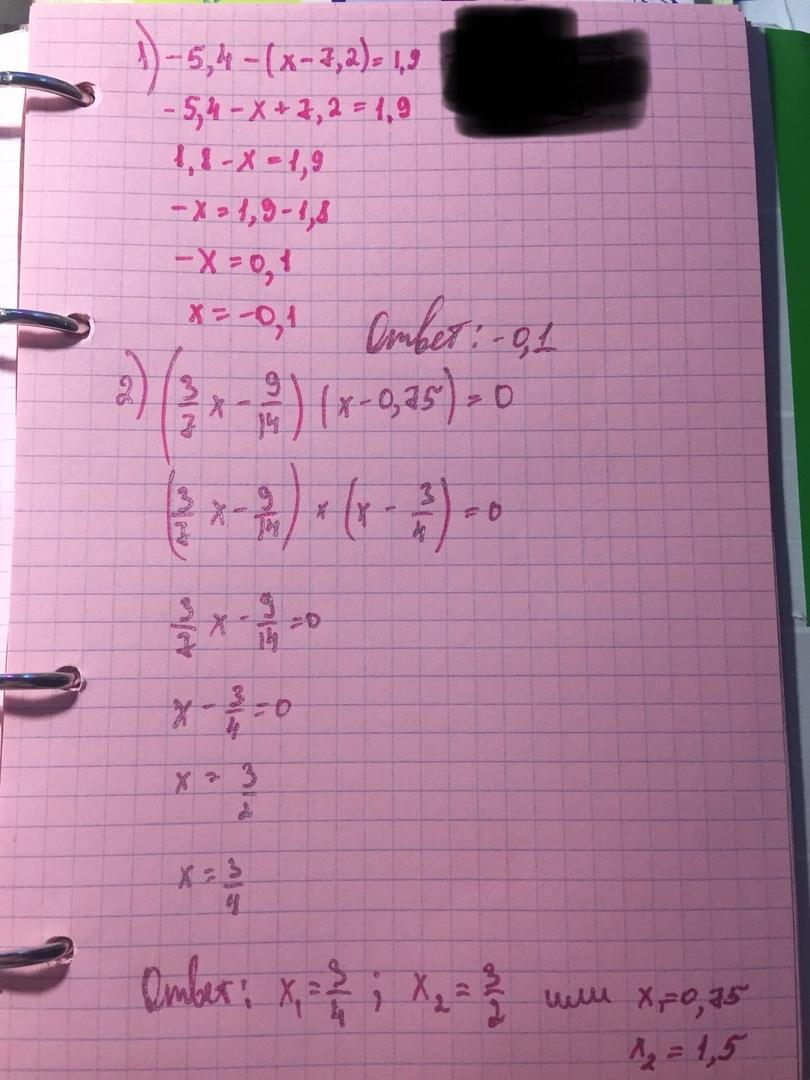 1) -5,4 - (x - 7,2) = 1,9
-5,4 - x + 7,2 = 1,9
1,8 - x = 1,9
-x = 1,9 - 1,8
-x = 0,1
x = -0,1
Ответ: -0,1
2) (3/7 x - 9/14) (x - 0,75) = 0
(3/7 x - 9/14) × (x - 3/4) = 0
3/7 x - 9/14 = 0
x - 3/4 = 0
x = 3/2
x = 3/4
Ответ: x₁ = 3/4 ; x₂ = 3/2 или x₁ = 0,75
x₂ = 1,5